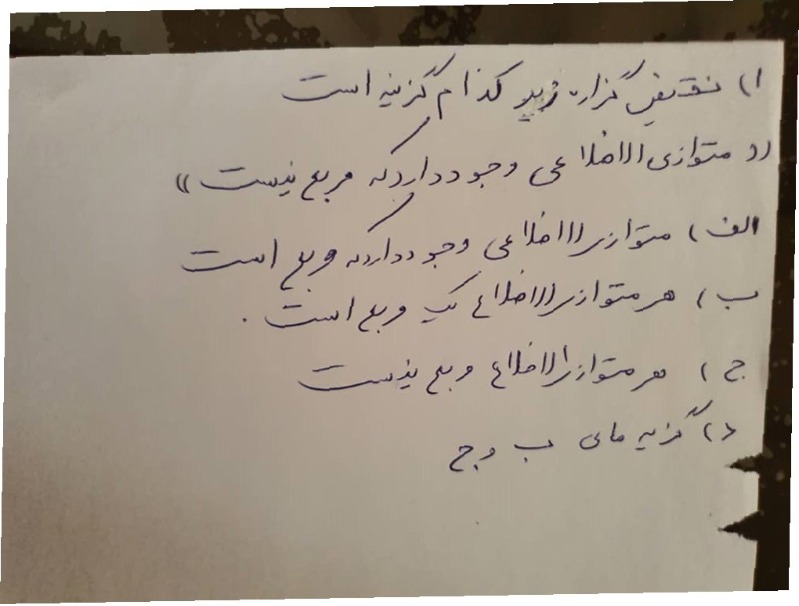 ۱) نقیض گزاره زیر کدام گزینه است
«متوازی الاضلاعی وجود دارد که مربع نیست»
الف) متوازی الاضلاعی وجود دارد که مربع است
ب) هر متوازی الاضلاع یک مربع است.
ج) هر متوازی الاضلاع مربع نیست
د) گزینه های ب و ج